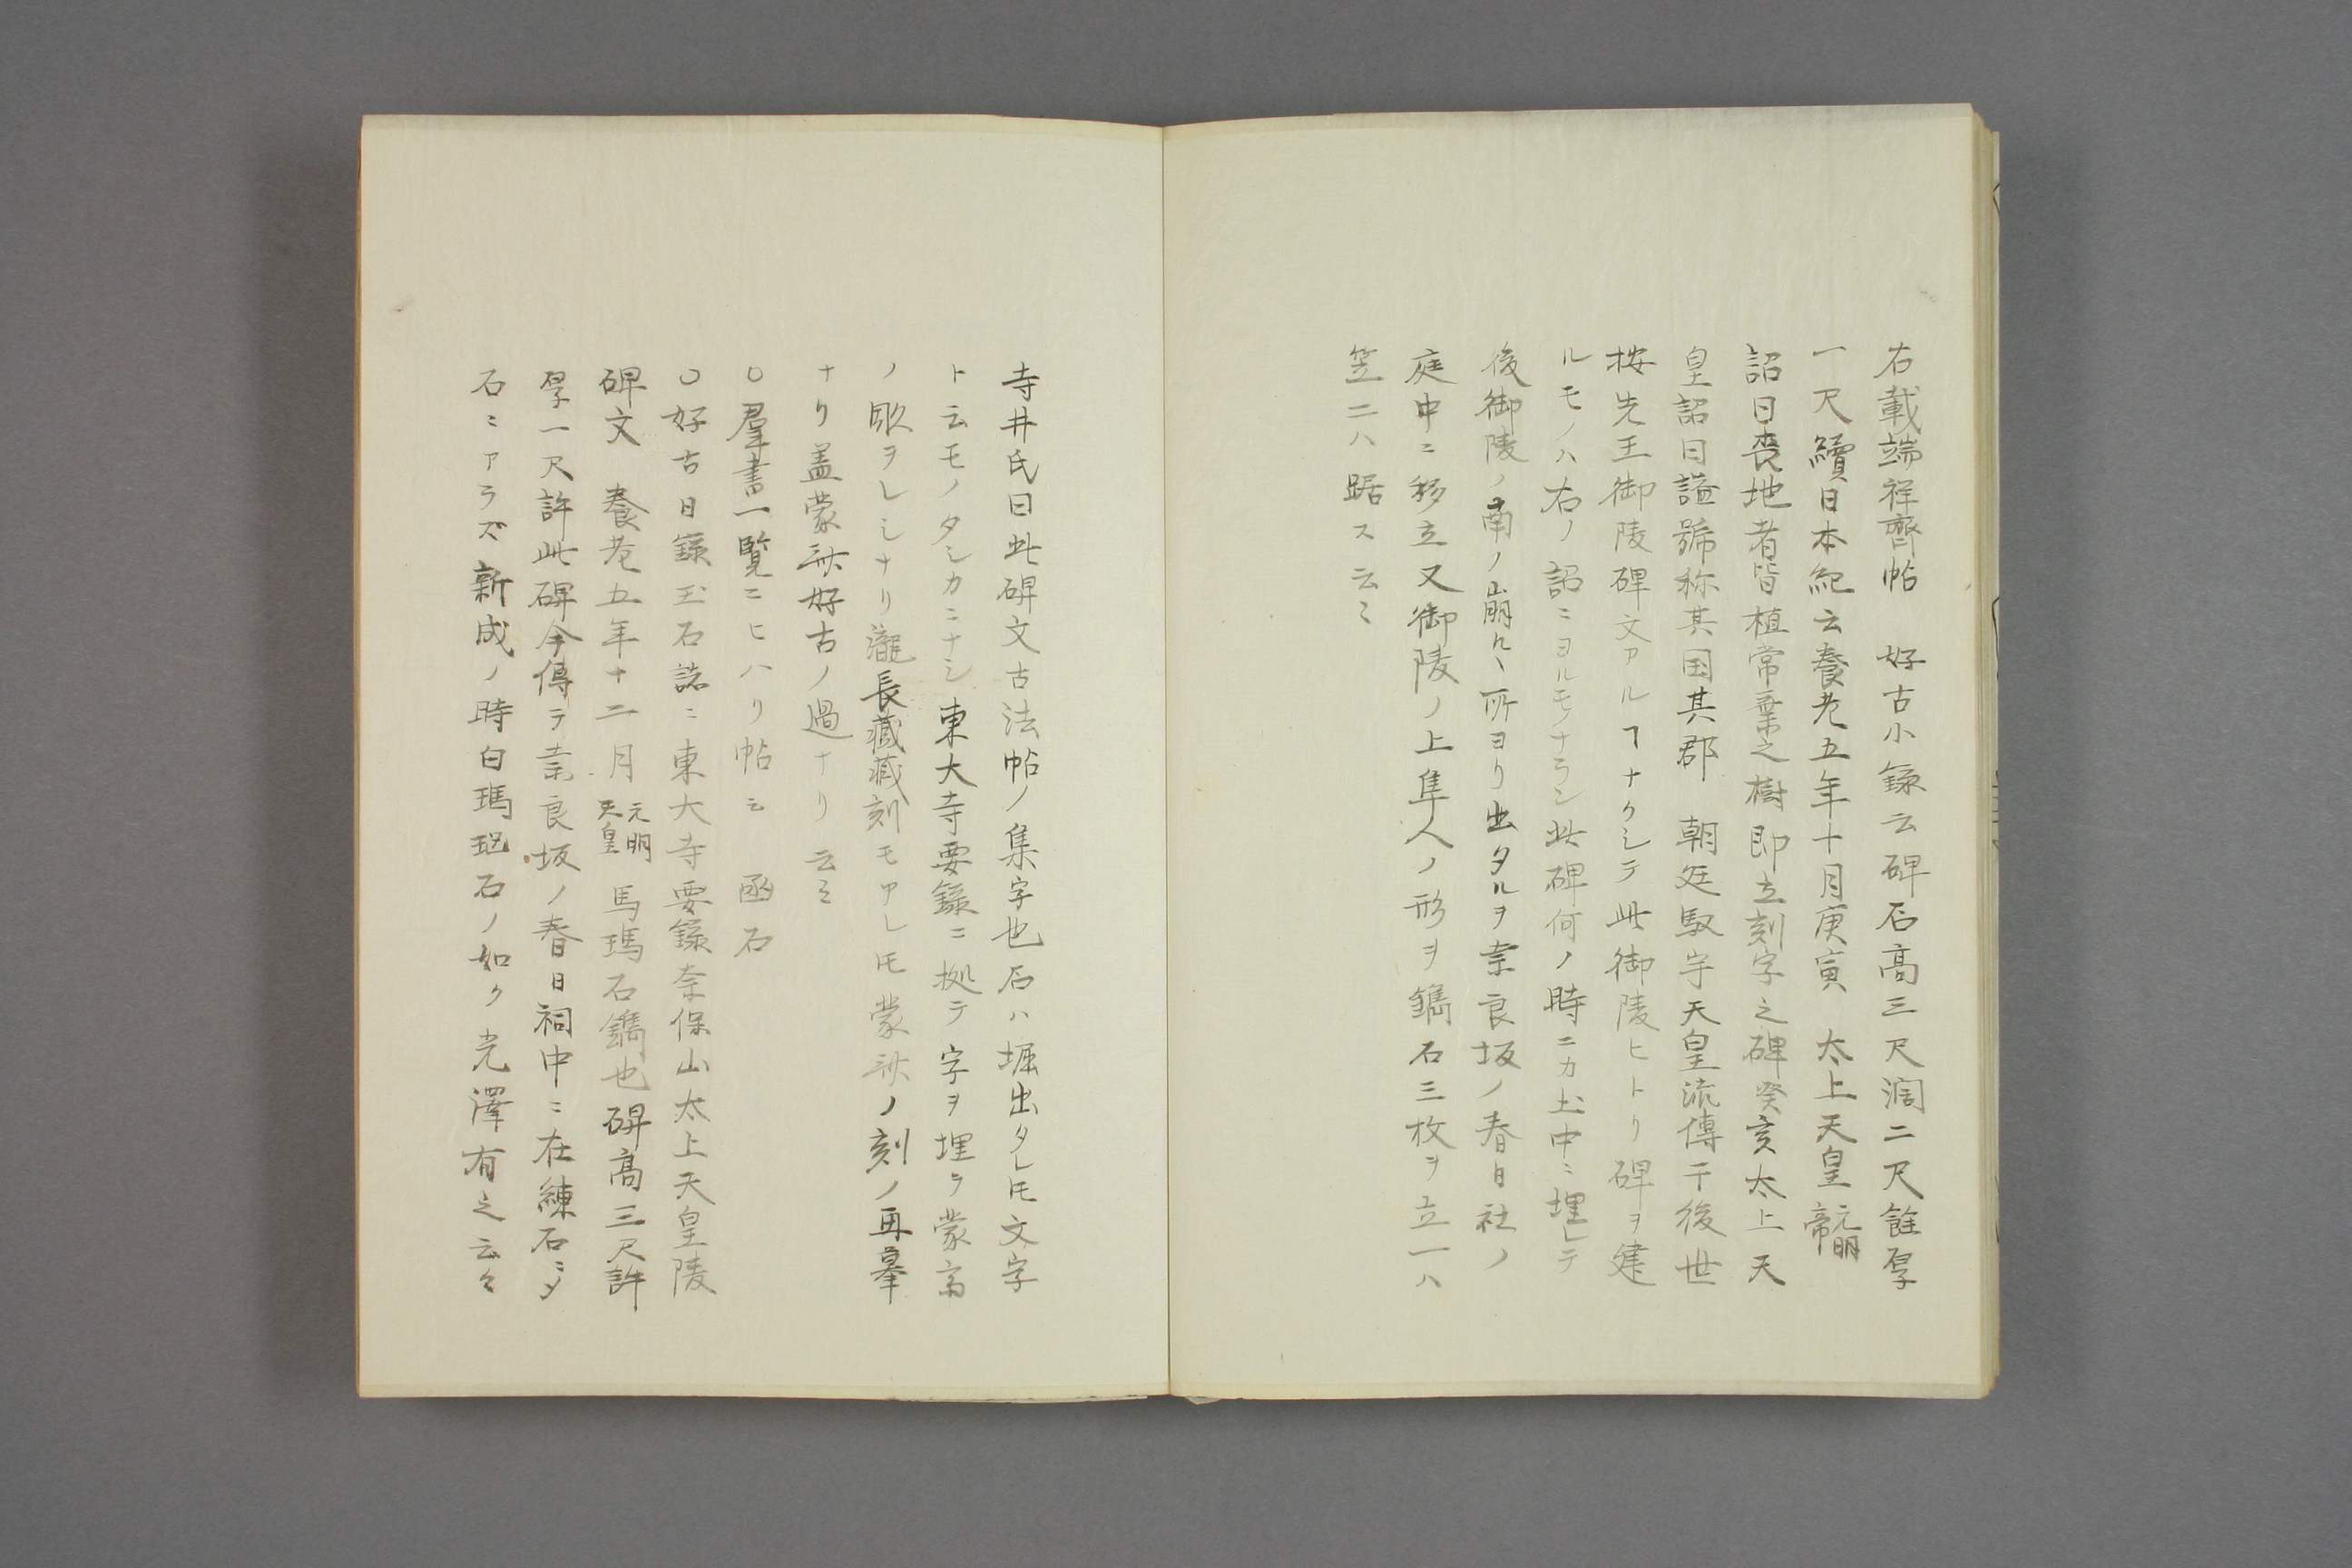 右載端祥齊帖　好古小錄云碑石高三尺濶二尺餘厚
一尺續日本紀云養老五年十月庚寅　太上天皇元明帝
詔曰喪地者皆植常葉之樹即立刻字之碑癸亥太上天
皇詔曰謚號称其国其郡　朝廷馭宇天皇流傳于後世
按先王御陵碑文アルヿナクシテ此御陵ヒトリ碑ヲ建
ルモノハ右ノ詔ニヨルモノナラン此碑何ノ時ニカ土中ニ埋レテ
後御陵ノ南ノ崩ルヽ所ヨリ出タルヲ奈良坂ノ春日社ノ
庭中ニ移立又御陵ノ上隼人ノ形ヲ鐫石三枚ヲ立一ハ
笠二ハ踞ス云〻
寺井氏曰此碑文古法帖ノ集字也石ハ堀出タレ𪜈文字
ト云モノタシカニナシ東大寺要錄ニ拠テ字ヲ埋ラ蒙斎
ノ彫ヲレシナリ瀧長藏藏刻モアレ𪜈蒙斎ノ刻ノ再摹
ナリ盖蒙斎好古ノ過ナリ云〻
○羣書一覧ニヒハリ帖云　函石
○好古日錄玉石誌ニ東大寺要錄奈保山太上天皇陵
碑文　養老五年十二月元明天皇　馬瑙石鐫也碑高三尺許
厚一尺許此碑今傳テ奈良坂ノ春日祠中ニ在練石ニメ
石ニアラズ新成ノ時白瑪瑙石ノ如ク光澤有之云々